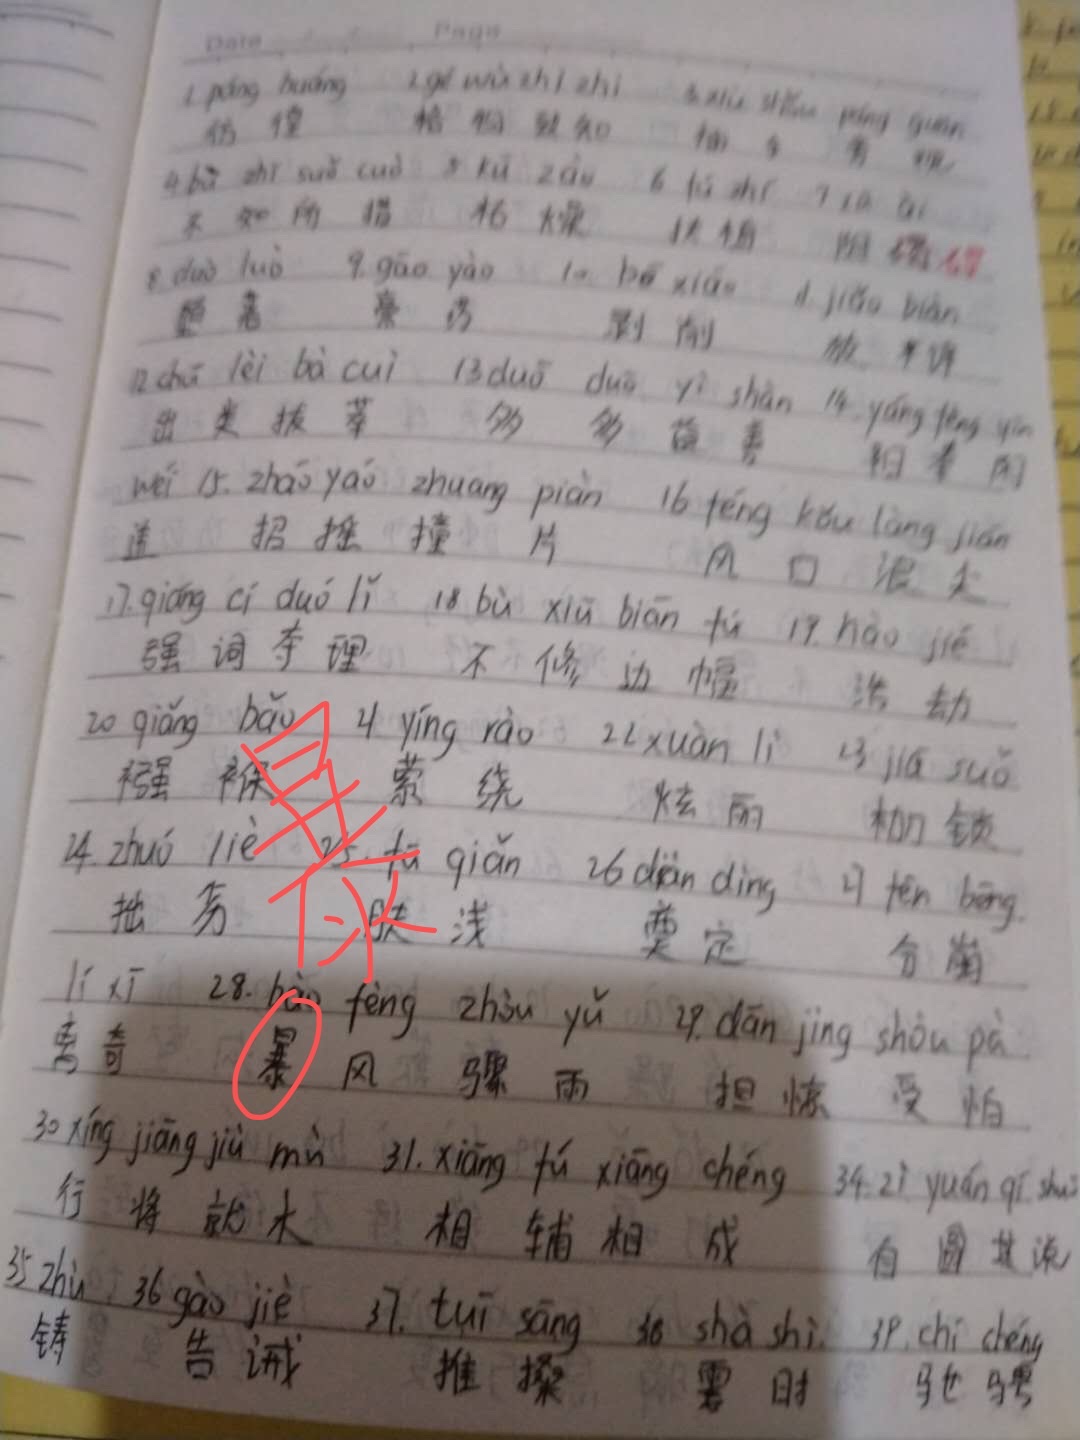 Date Page
1. páng huáng 2. gé wù zhì zhī 3. xiù shǒu páng guān
彷徨 格物致知 袖手旁观
4. bù zhī suǒ cuò 5 kū zào 6 fú zhí 7
不知所措 枯燥 扶植 阻碍 碍
8 duò luò 9. gāo yào 10. bō xiāo 11. jiǎo biàn
堕落 膏药 剥削
12. chū lèi bá cuì 13 duō duō yì shàn 14. yáng fèng yīn
出类拔萃 多多益善 阳奉阴
wéi 15. zhāo yáo zhuàng piàn 16 fēng kǒu làng jiān
违 招摇撞片 风口浪尖
17. qiǎng cí duó lǐ 18 bù xiū biān fú 19. hào jié
强词夺理 不修边幅 浩劫
20 qiǎng bǎo 21 yíng rào 22 xuàn lì 23 jiā suǒ
襁褓 萦绕 炫丽 枷锁
24. zhuō liè 25. fū qiǎn 26 diàn dìng 27 fēn bēng
拙劣 肤浅 奠定 分崩
lí xī 28. bào fēng zhòu yǔ 29. dān jīng shòu pà
离奇 暴风骤雨 担惊受怕
30 xíng jiāng jiù mù 31. xiāng fú xiāng chéng 34. zì yuán qí shuō
行将就木 相辅相成 自圆其说
35 zhù 36 gào jiè 37. tuī sāng 38 shà shí. 39. chí chěng
铸 告诫 推搡 霎时 驰骋